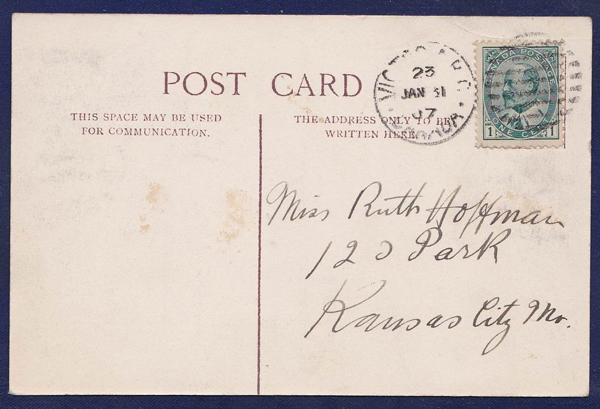 POST CARD
THIS SPACE MAY BE USED
FOR COMMUNICATION.
THE ADDRESS ONLY TO BE
WRITTEN HERE
VICTORIA, B.C.
23
JAN 31
07
CANADA
CANADA POSTAGE
1 ONE CENT 1
Miss Ruth Hoffman
120 Park
Kansas City Mo.